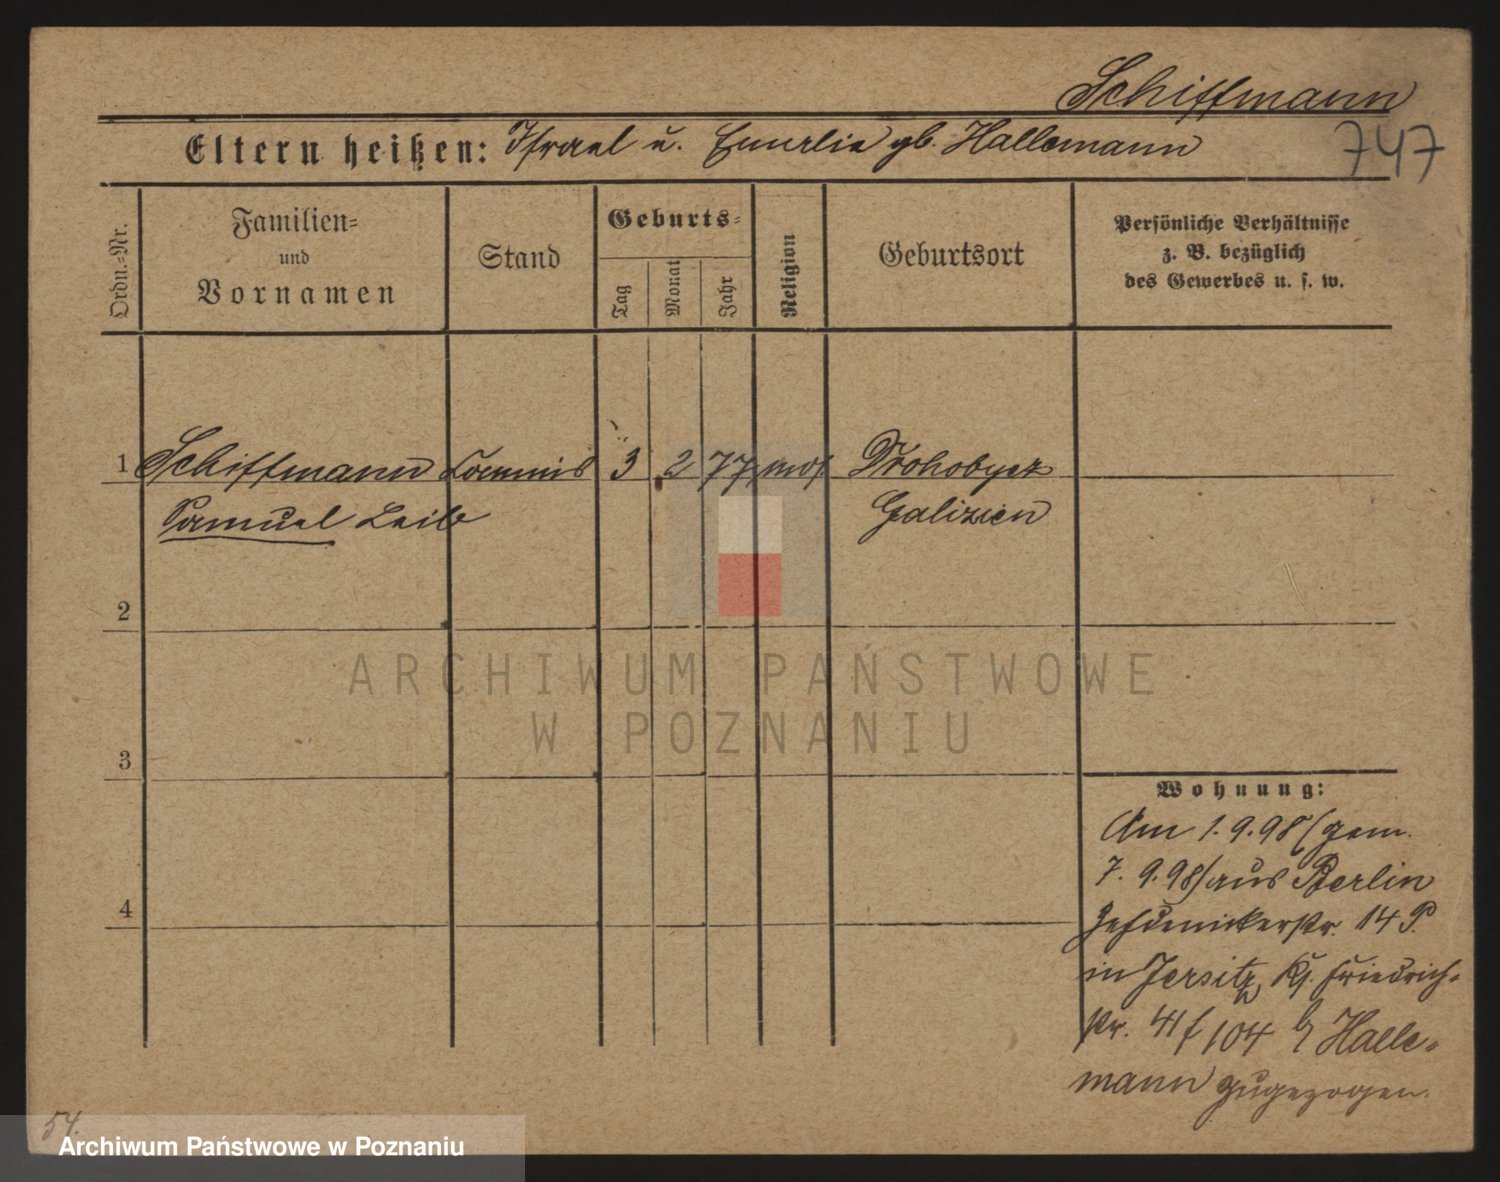 Schiffmann
747
Eltern heißen: Israel u. Emilie gb. Hallemann
Ordn.-Nr.
Familien-
und
Vornamen
Stand
Geburts-
Tag
Monat
Jahr
Religion
Geburtsort
Persönliche Verhältnisse
z. B. bezüglich
des Gewerbes u. s. w.
1 Schiffmann Commis 3 2 77 mos Drohobycz
Samuel Leib Galizien
2
3
4
Wohnung:
Am 1.9.98 (gem.
7.9.98) aus Berlin
Zehdenickerstr. 14 P.
in Jersitz, Kg. Friedrich-
str. 41 f 104 b/ Halle-
mann zugezogen.
54.
ARCHIWUM PAŃSTWOWE
W POZNANIU
Archiwum Państwowe w Poznaniu